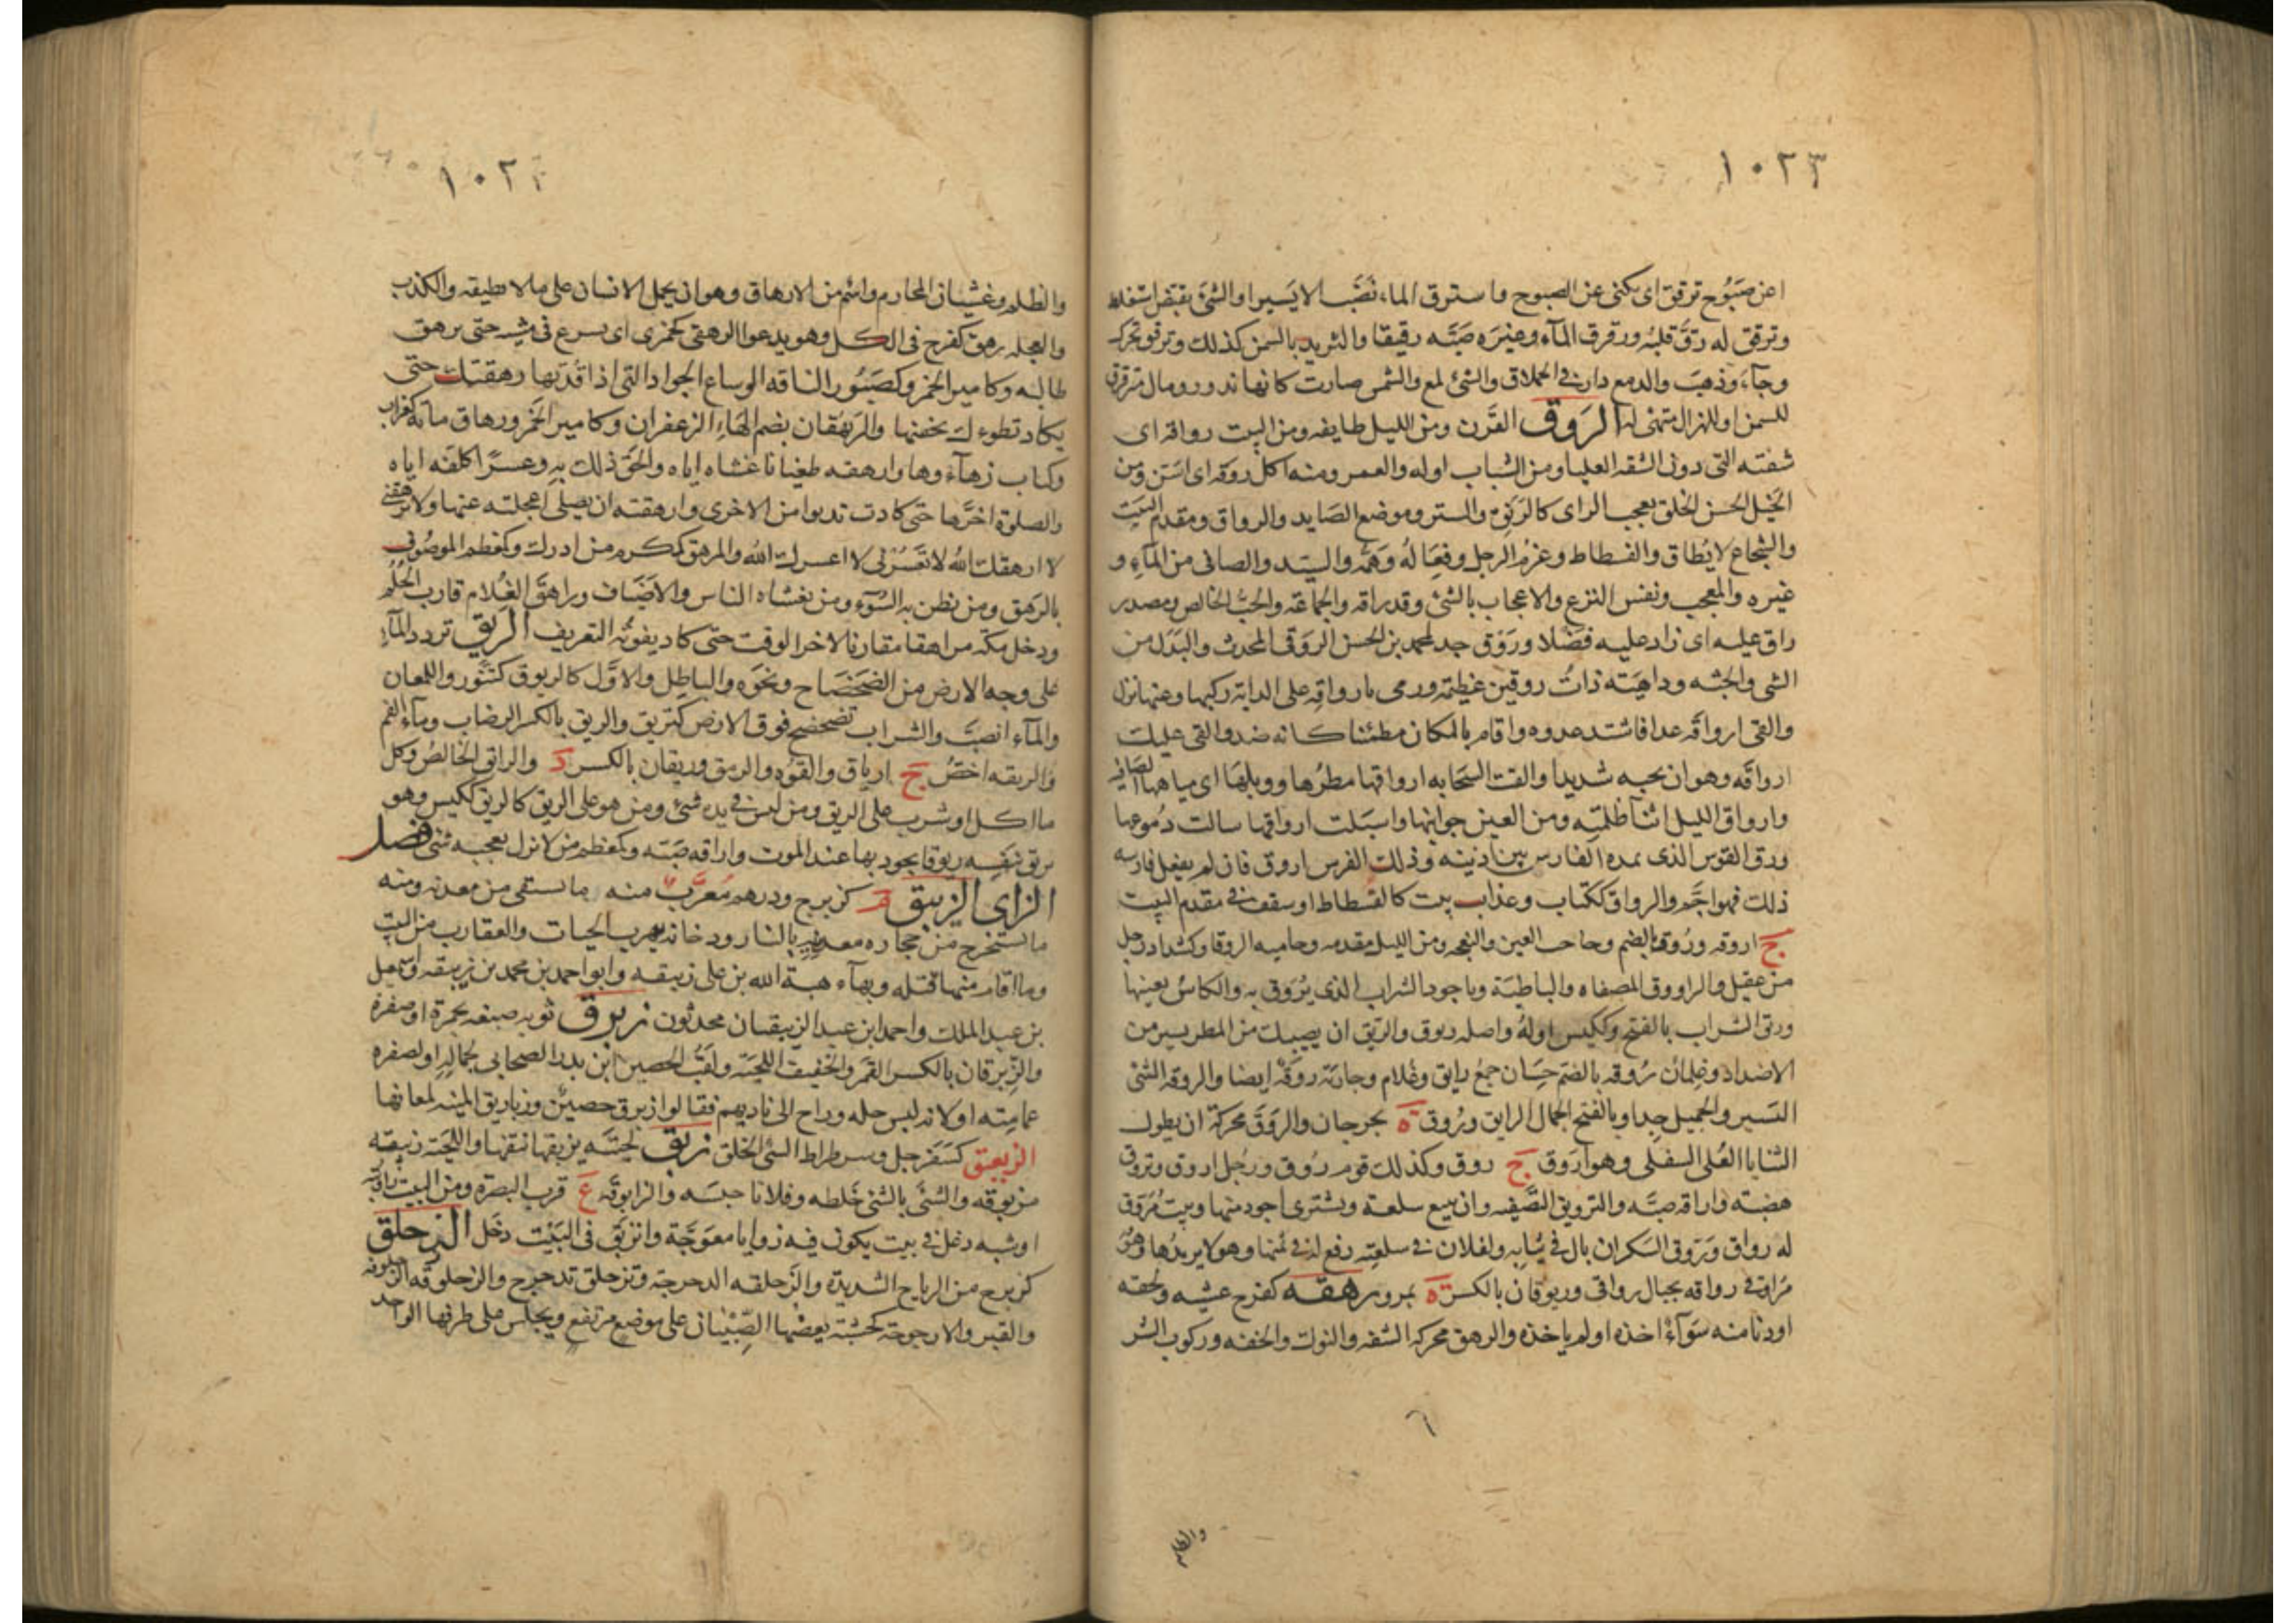 ١٠٢٣
اعن صَبُوح ترقق اى تكنى عن الصبوح واسترق الماء نضب الا يَسيرا والشئ نقيض استغلظ
وترقق له رقَّ قلبُه ورقرق المآء وغيرَه صَبَّه رقيقا والثريد بالسمن كذلك وترقرق تحرك
وجآء وذهبَ والدمع دار فى الحملاق والشئ لمع والشمس صارت كانها تدور ومال مترقرق
للسمن او للهزال متهئ له الرَوق القَرن ومن الليل طايفه ومن البيت رواقه اى
شقته التى دون الشقه العليا ومن الشباب اوله والعمر ومنه اكل روقه اى اسَنَ ومن
الخيل الحسن الخلق يعجب الراى كالرَيّق والستر وموضع الصَايد والرواق ومقدم البَيت
والشجاع لا يُطاق والفسطاط وعزمُ الرجل وفِعَالُه وَهَمُّه والسيد والصافى من المآءِ و
غيره والمعجب ونفس النزع والاعجاب بالشئ وقد راقه والجماعَه والحبُّ الخالص ومصدر
راق عليه اى زاد عليه فضلا ورَوْق جد لمحمد بن الحسن الروَقى المحدث والبَدَل من
الشى والجثه وداهيَته ذاتُ روقين عَظيمه ورمى بارواقِه على الدابة ركبها وعنها نزل
والقى ارواقه عدا فاشتد عدوه واقام بالمكان مطئنا كانه ضد والقى عليك
ارواقَه وهو ان تحبه شديدا والقت السَحَابه ارواقها مطرُها ووبلهَا اى مياهها الصَافيه
وارواق الليل اثنآ ظلمَتِه ومن العين جوانبها واسبَلت ارواقها سالت دُموعها
ورَوق الفرس الذى يمده الفارس بين اذنيه وذلك الفرس اروق فان لم يفعل فارسه
ذلك فهو اجَمّ والرواق ككتاب وغراب بيت كالفسطاط او سقف فى مقدم البَيت
ج اروقه ورُوق بالضم وحاجب العين والنعجه ومن الليل مقدمه وجانبه الروقا وكشداد رجل
من عقيل والراووق المصفاه والباطيَة وناجود الشراب الذى يُرَوّق به والكاسُ بعينها
وريّق الشراب بالفتح وككيس اولهُ واصله ريوق والريّق ان يصيبك من المطر يسير من
الاضداد وغِلمان رُوقه بالضم حِسَان جمعُ رايق وغُلام وجاريَة روقَة ايضا والروقه الشئ
اليَسير والجميل جِدا وبالفتح الجمال الرايق ورُوق ة بجرجان والروَق محركة ان يطول
الثنايا العُليا السفلى وهو اروَق ج روق وكذلك قوم رُوق ورَجُل اروق وتروق
هضبَه واراقه صبَّه والترويق التَّصفِيه وان يبيع سلعة ويشترى اجود منها وبيتُ مُرَوّق
له رواق ورَوق السَكران بال فى ثِيابِه ولفلان فى سلعتِه رفع له فى ثمنها وهو لا يريدُها وهو
مُراوقى رواقه بحيال رواقى وريوقان بالكسر ة بمرو رهقه كفرح غشيه ولحقه
او دنا منه سَوآءٌ اخذه او لم ياخذه والرهق محركه السَفه والنوك والخفه وركوب الشر
٦
والظلم
١٠٢٤
والظلم وغشيان المحارم واسم من الارهاق وهو ان يحمل الانسان على ما لا يطيقه والكذب
والعجله رهق كفرح فى الكل وهو يعدوا الرهقى كجمزى اى يسرع فى مشيه حتى يرهق
طالبه وكامير الخمر وكصَبُور الناقه الوساع الجواد التى اذا قُدتها رهقتك حتى
يكاد تطوءك بخفيها والرَيهُقان بضم الهَاءِ الزعفران وكامير الخَمر ورهاق مائه كغراب
وكتاب زهآءوها وارهقه طغيانا غشاه اياه والحق ذلك به وعسرًا كلفه اياه
والصلوة اخرَّها حتى كادت تدنوا من الاخرى وارهقته ان يصلى اعجلته عنها ولا ترهقنى
لا ارهقك الله لا تُعَسُرنى لا اعسرك الله والمرهق كمكرم من ادرك وكمعظم الموصُوف
بالرَهق ومن يظن به السُوء ومن يغشاه الناس والاضيَاف وراهقَ الغُلام قارب الحُلُم
ودخل مكّه مراهقا مقاربا لاخر الوقت حتى كاد يفوتُه التعريف الرَيْق تردد المآءِ
على وجه الارض من الضَحضَاح ونحَوِه والباطِل والاوَّل كالريوق كتَنُّور واللمعان
والمآء انصبَّ والشراب تضحضح فوق الارض كتريق والريق بالكسر الرضاب ومآء الفم
والريقه اخصُّ ج ارياق والقُوه والرمق وريقان بالكسر د والرائق الخالصُ وكل
ما اكل او شرب على الريق ومن ليس فى يده شئ ومن هو على الريق كالريق ككيس وهو
يريق بنفسِه ريوقا يجود بها عند الموت واراقه صَبّه وكمعظم من لا يزل يعجبه شئ فصل
الزاى الزيبق م كزبرج ودرهم مُعرَّب منه ما يستقى من معدنه ومنه
ما يستخرج من حجاره معدنيه بالنار ودخانه يهرب الحيات والعقارب من البيت
وما اقام منها قتله وبهآء هبة الله بن على زيبقه وابو احمد بن محمد بن زيبقه واسمعيل
بن عبد الملك واحمد ابن عبد الزيبقيان محدثون زبرق ثوبه صبغه بحمرة او صفرة
والزِّبرقان بالكسر القمَر والخفيف اللحيَة ولَقبُ الحصين ابن بدر الصحابى لجمالِه او لصفره
عمامِته او لانه لبس حله وراح الى ناديهم فقالوا زبرق حصينٌ وزباريق المنيه لمعانها
الزبعبق كسَفَرجل وسرطراط السئ الخلق زبق لحيَته يزبقها نتفها واللحيَة زبيقه
مزبوقه والشئَ بالشئ خلطه وفلانا حبسَه والزابوقَه ع قرب البصرة ومن البيت زاويته
او شبه دغل فى بيت يكون فيه زوايا معوَجَّة وانزبَق فى البَيْت دخَل الزحلق
كزبرج من الرياح الشديدة والزَحلقه الدحرجة وتزحلق تدحرج والزحلوقَه الزحلوفه
والقبر والارجوحة لخشبَة يضعها الصِّبيَان على موضع مرتفع ويجلس على طرفها الواحد